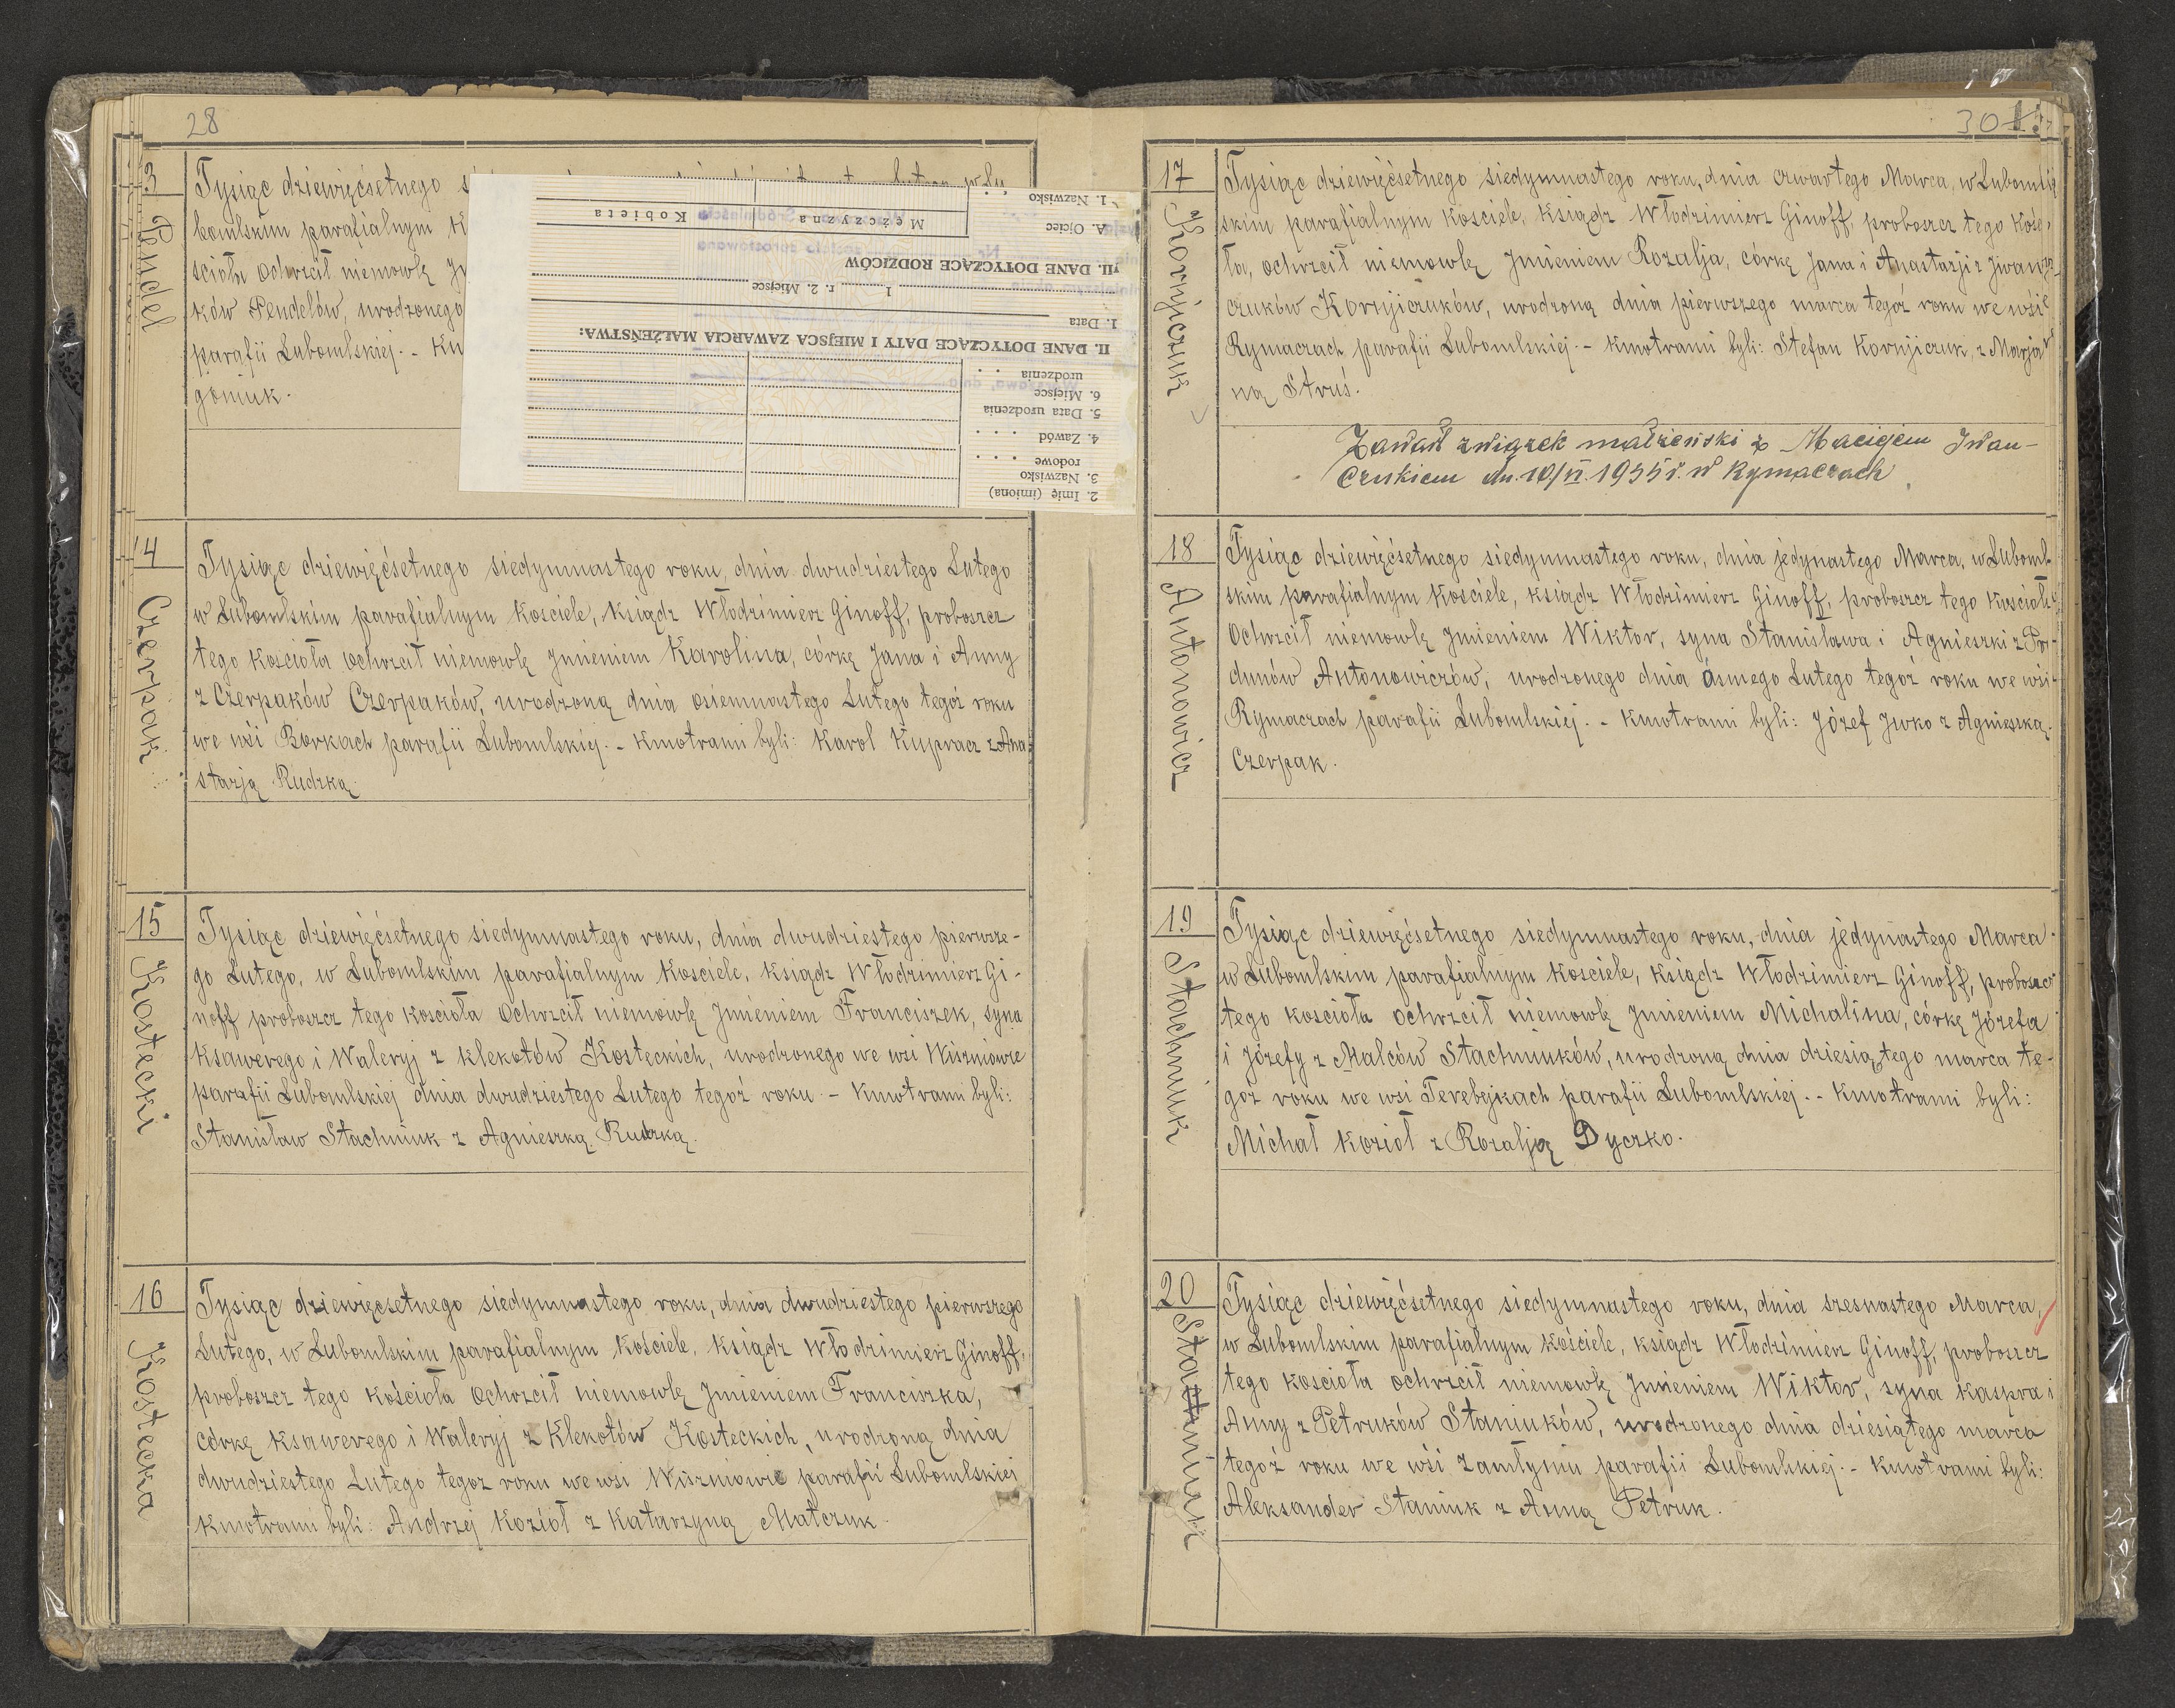 28
13
Pendel
Tysiąc dziewięćsetnego
bomlskim parafialnym
ścioła ochrzcił niemowlę
ków Pendelów, urodzonego
parafii Lubomlskiej. - Ku
goniuk.
1. Nazwisko
Mężczyzna Kobieta
A. Ojciec
III. DANE DOTYCZĄCE RODZICÓW
1 r. 2. Miejsce
1. Data
II. DANE DOTYCZĄCE DATY I MIEJSCA ZAWARCIA MAŁŻEŃSTWA:
urodzenia
6. Miejsce
5. Data urodzenia
4. Zawód
rodowe
3. Nazwisko
2. Imię (imiona)
14
Czerpak
Tysiąc dziewięćsetnego siedymnastego roku, dnia dwudziestego Lutego
w Lubomlskim parafialnym Kosciele, Ksiądz Włodzimierz Ginoff, proboszcz
tego Kościoła ochrzcił niemowlę Jmieniem Karolina, córkę Jana i Anny
z Czerpaków Czerpaków, urodzoną dnia osiemnastego Lutego tegoż roku
we wsi Borkach parafii Lubomlskiej. - Kmotrami byli: Karol Kupracz z Ana
stazją Rudzką
15
Kostecki
Tysiąc dziewięćsetnego siedymnastego roku, dnia dwudziestego pierwsze-
go Lutego, w Lubomlskim parafialnym Kosciele, Ksiądz Włodzimierz Gi-
noff proboszcz tego Kościoła Ochrzcił niemowlę Jmieniem Franciszek, syna
Ksawerego i Waleryj z Klekotów Kosteckich, urodzonego we wsi Wiszniowie
parafii Lubomlskiej dnia dwudziestego Lutego tegoż roku - Kmotrami byli:
Stanisław Stachniuk z Agnieszką Rudzką.
16
Kostecka
Tysiąc dziewięćsetnego siedymnastego roku, dnia dwudziestego pierwszego
Lutego, w Lubomlskim parafialnym Kościele, Ksiądz Włodzimierz Ginoff,
proboszcz tego Kościoła Ochrzcił niemowlę Jmieniem Franciszka,
córkę Ksawerego i Waleryj z Klekotów Kosteckich, urodzoną dnia
dwudziestego Lutego tegoż roku we wsi Wiszniowie parafii Lubomlskiej
Kmotrami byli: Andrzej Kozioł z Katarzyną Matczuk.
30
17
Kornijczuk
Tysiąc dziewięćsetnego siedymnastego roku, dnia czwartego Marca, w Lubomlskim
skim parafialnym Kosciele, Ksiądz Włodzimierz Ginoff, proboszcz tego Kości,
ła, ochrzcił niemowlę Jmieniem Rozalja, córkę Jana i Anastazji z Jwań-
czuków Kornijczuków, urodzoną dnia pierwszego marca tegoż roku we wsi
Rymaczach parafii Lubomlskiej. - Kmotrami byli: Stefan Kornijczuk, z Marja
ną Struś.
Zawarł związek małżeński z Maciejem Iwan-
czukiem dn. 10/VI. 1935 r. w Rymaczach
18
Antonowicz
Tysiąc dziewięćsetnego siedymnastego roku, dnia jedynastego Marca, w Luboml-
skim parafialnym Kościele, Ksiądz Włodzimierz Ginoff, proboszcz tego Kościoła
Ochrzcił niemowlę Jmieniem Wiktor, syna Stanisława i Agnieszki z Po-
dunów Antonowiczów, urodzonego dnia ósmego Lutego tegoż roku we wsi
Rymaczach parafii Lubomlskiej. - Kmotrami byli: Józef Jwko z Agnieszką
Czerpak.
19
Stachniuk
Tysiąc dziewięćsetnego siedymnastego roku, dnia jedynastego Marca
w Lubomlskim parafialnym Kosciele, Ksiądz Włodzimierz Ginoff, proboszcz
tego Kościoła ochrzcił niemowlę Jmieniem Michalina, córkę Józefa
i Józefy z Malców Stachniuków, urodzoną dnia dziesiątego marca te-
goż roku we wsi Terebejkach parafii Lubomlskiej. - Kmotrami byli:
Michał Kozioł z Rozalją Dyczko.
20
Staniuk
Tysiąc dziewięćsetnego siedymnastego roku, dnia szesnastego Marca,
w Lubomlskim parafialnym Kościele, Ksiądz Włodzimierz Ginoff, proboszcz
tego Kościoła ochrzcił niemowlę Jmieniem Wiktor, syna Kaspra i
Anny z Petruków Staniuków, urodzonego dnia dziesiątego marca
tegoż roku we wsi Zamłyniu parafii Lubomlskiej. - Kmotrami byli:
Aleksander Staniuk z Anną Petruk.